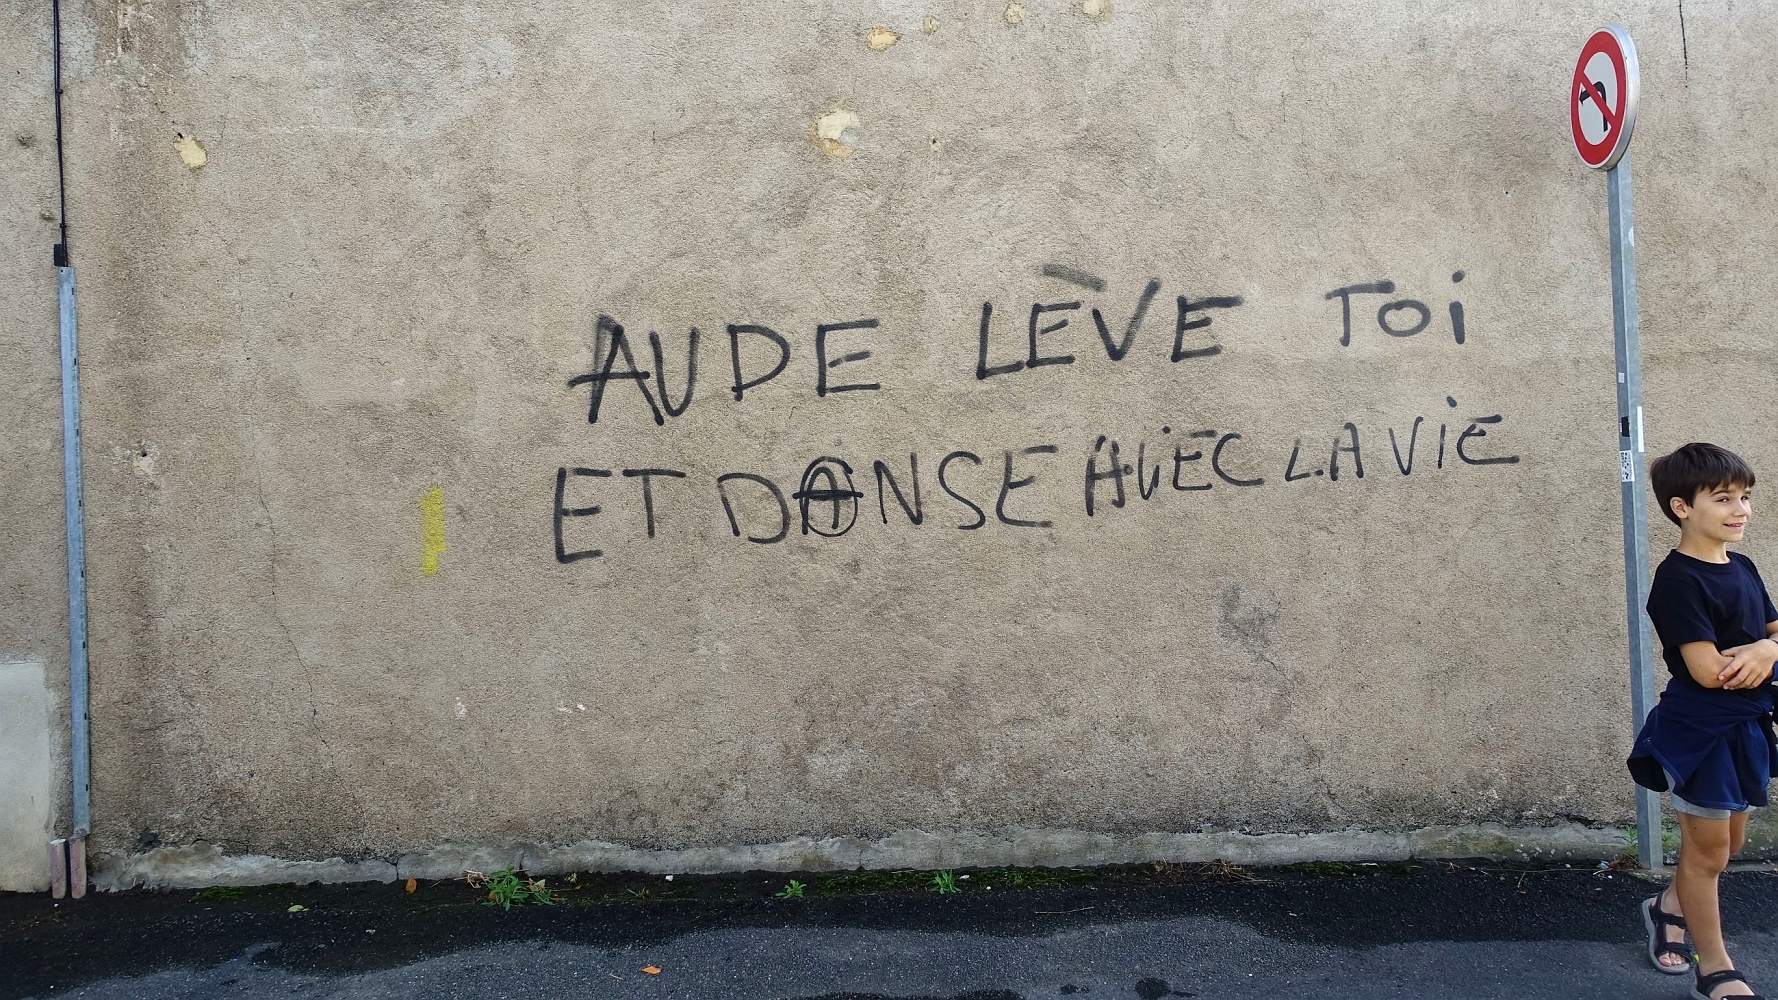 AUDE LÈVE TOi
ET DANSE AVEC LA ViE